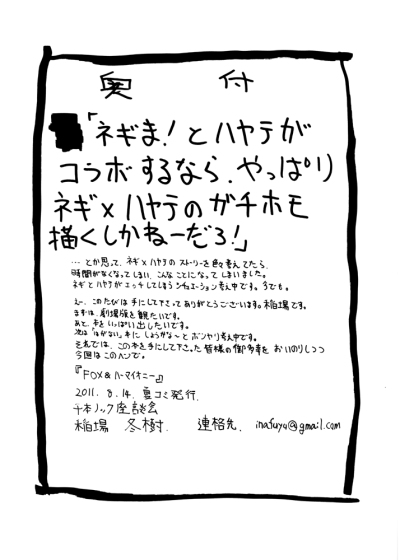 奥付
「ネギま!とハヤテが
コラボするなら、やっぱり
ネギ×ハヤテのガチホモ
描くしかねーだろ!」
…とか思って、ネギ×ハヤテのストーリーを色々考えてたら、
時間がなくなってしまい、こんなことになってしまいました。
ネギとハヤテがエッチしてしまうシチュエーション考え中です。今でも。
えー、このたびは手にして下さってありがとうございます。稲場です。
まずは、劇場版を観たいです。
あと、本をいっぱい出したいです。
次は「はがない」本にしようかな〜とボンヤリ考え中です。
それでは、この本を手にして下さった皆様の御多幸をお祈りしつつ
今回はこのへんで。
『FOX&ハーマイオニー』
2011.8.14. 夏コミ発行.
千本ノック座談会
稲場 冬樹. 連絡先. inafuyu@gmail.com